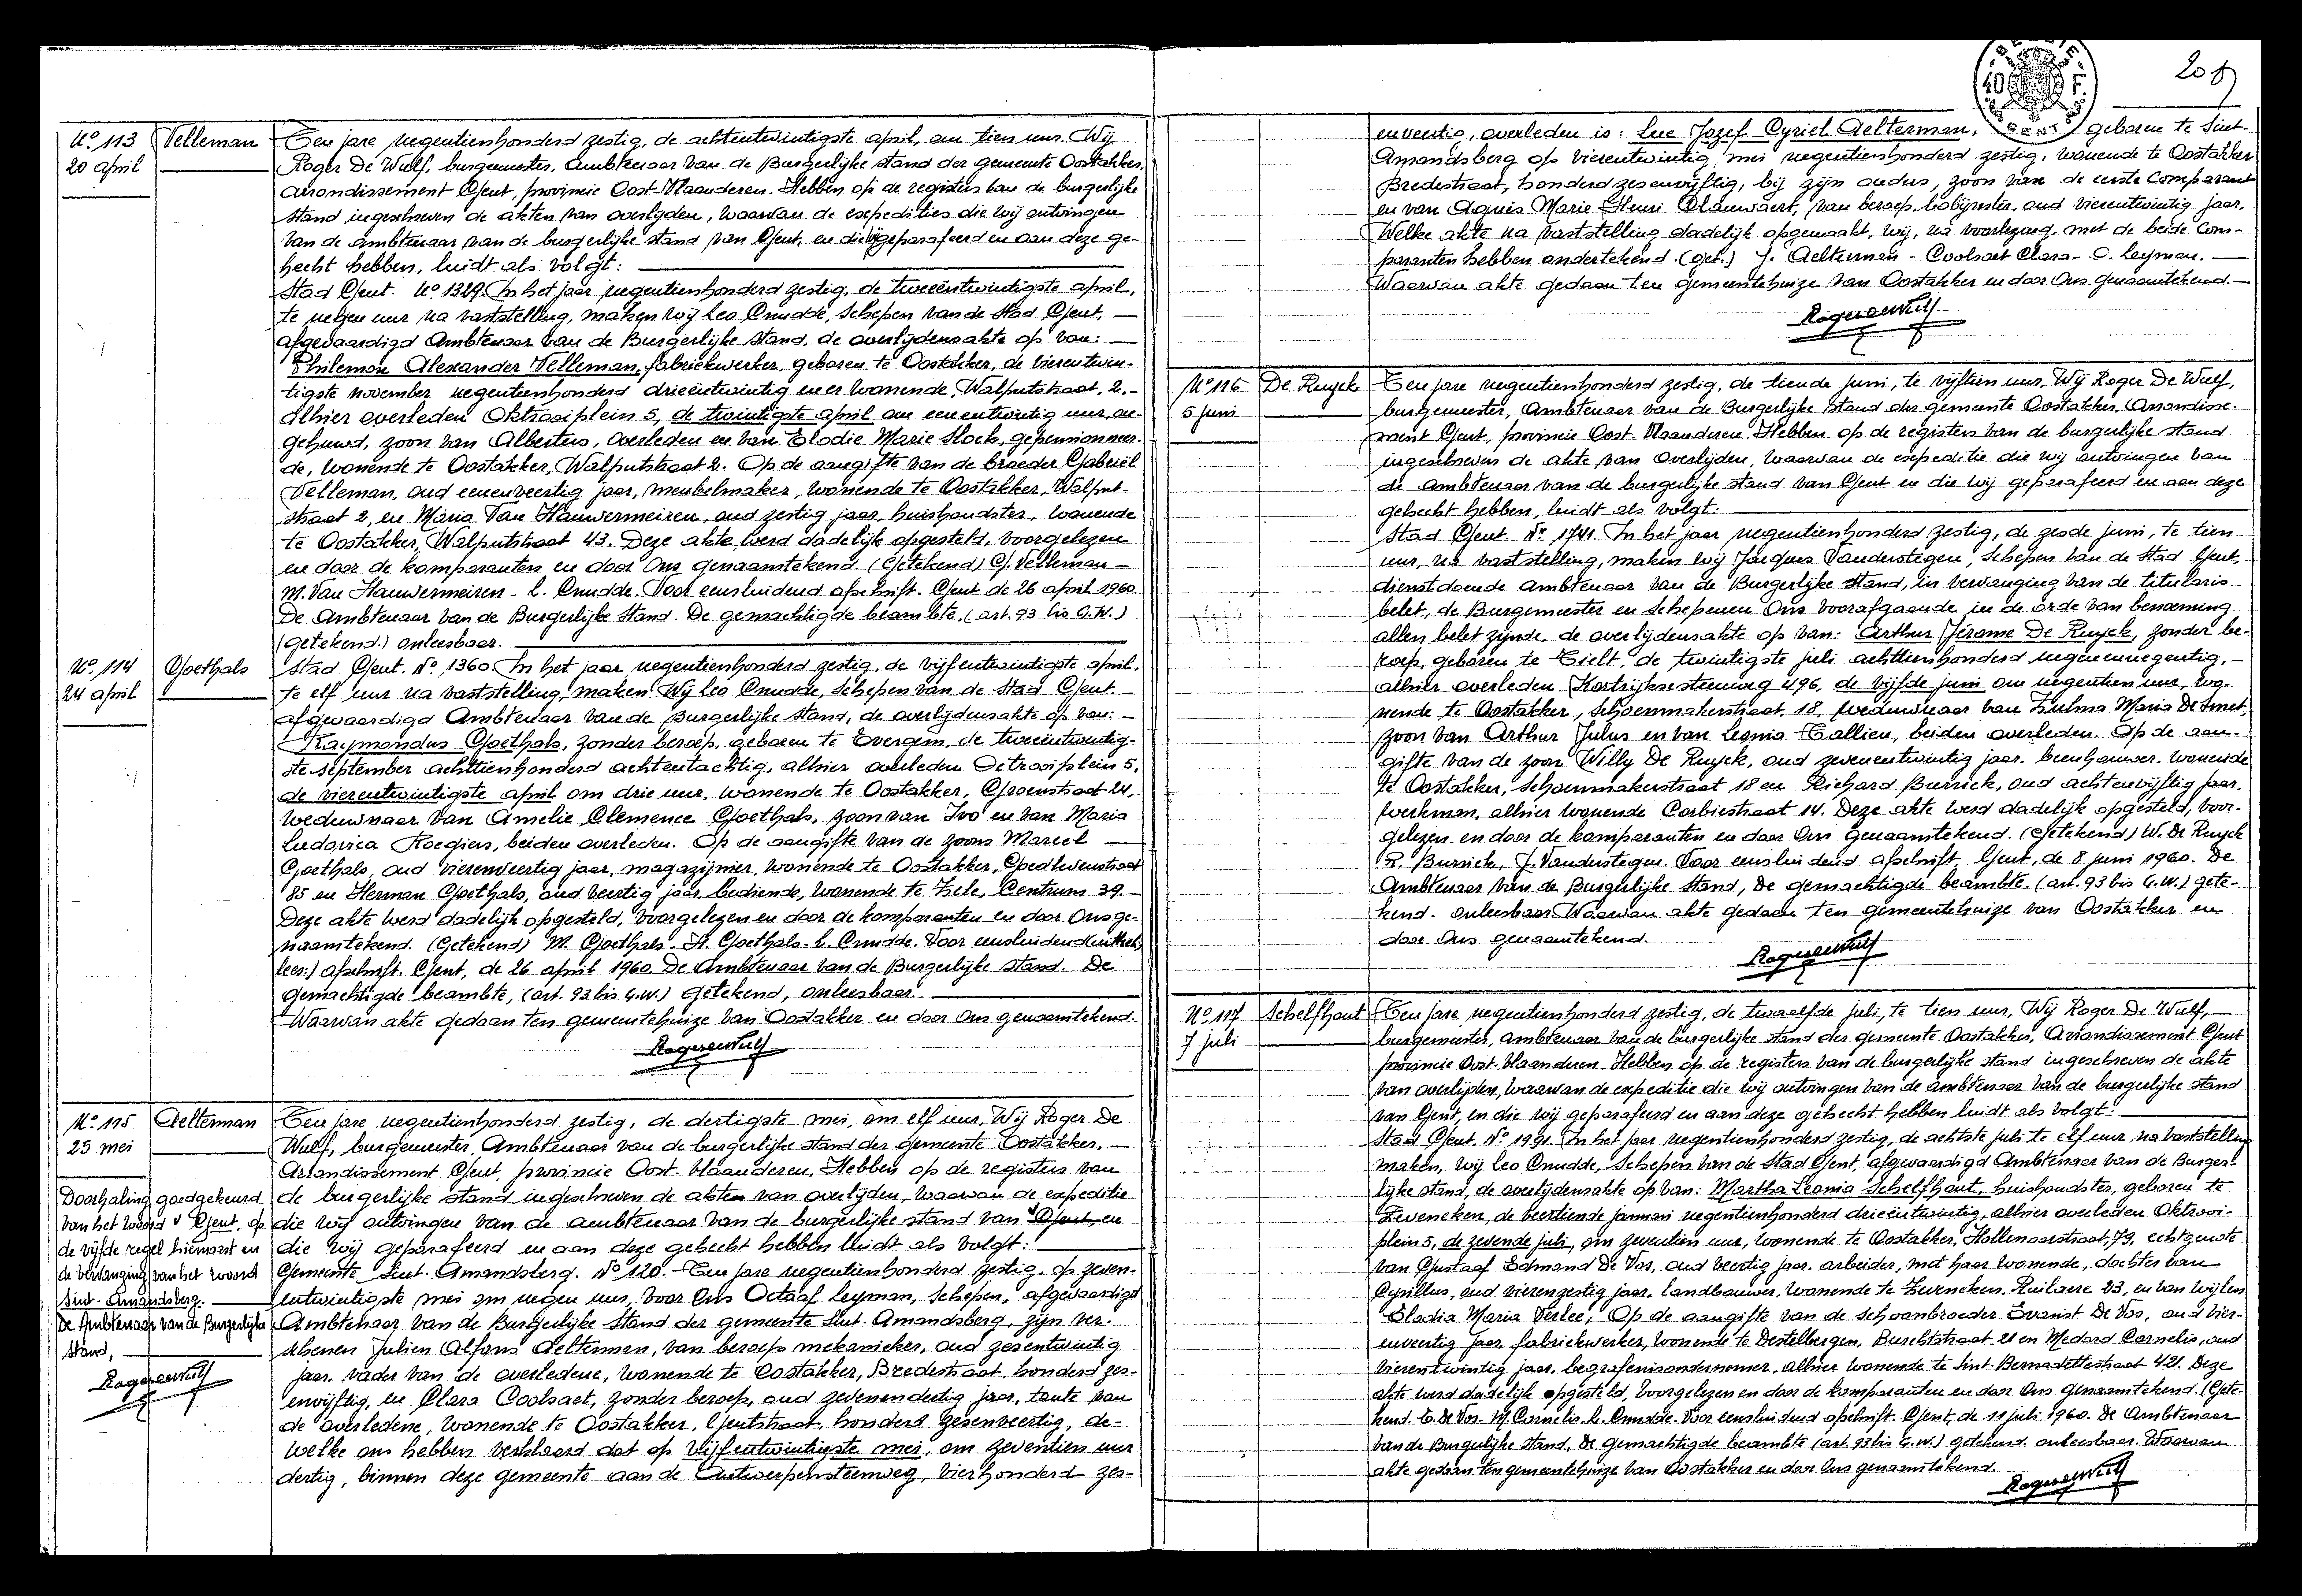 No. 113
20 april
Velleman
Ten jare negentienhonderd zestig, de achtentwintigste april, om tien uur. Wij
Roger De Wulf, burgemeester, Ambtenaar van de Burgerlijke stand der gemeente Oostakker,
arrondissement Gent, provincie Oost-Vlaanderen. Hebben op de registers van de burgerlijke
stand ingeschreven de akten van overlijden, waarvan de expedities die wij ontvingen
van de ambtenaar van de burgerlijke stand van Gent, en die wij geparafeerd en aan deze ge-
hecht hebben, luidt als volgt:
Stad Gent. No. 1329. In het jaar negentienhonderd zestig, de tweeëntwintigste april,
te negen uur na vaststelling, maken wij Leo Cnudde, Schepen van de Stad Gent,
afgevaardigd Ambtenaar van de Burgerlijke Stand, de overlijdensakte op van:
Philemon Alexander Velleman, fabriekwerker, geboren te Oostakker, de vierentwin-
tigste november negentienhonderd drieëntwintig en er wonende, Walputstraat, 2.-
Alhier overleden Oktrooiplein 5, de twintigste april om eenentwintig uur, on-
gehuwd, zoon van Albertus, overleden en van Elodie Marie Slock, gepensionneer-
de, wonende te Oostakker, Walputstraat 2. Op de aangifte van de broeder Gabriël
Velleman, oud eenenveertig jaar, meubelmaker, wonende te Oostakker, Walput-
straat 2, en Maria Van Hauwermeiren, oud zestig jaar, huishoudster, wonende
te Oostakker, Walputstraat 43. Deze akte werd dadelijk opgesteld, voorgelezen
en door de komparanten en door Ons genaamtekend. (Getekend) G. Velleman -
M. Van Hauwermeiren - L. Cnudde. Voor eensluidend afschrift. Gent de 26 april 1960
De Ambtenaar van de Burgerlijke Stand. De gemachtigde beambte, (art. 93 bis G.W.)
(getekend.) onleesbaar.
No. 114
24 april
Goethals
Stad Gent. No. 1360. In het jaar negentienhonderd zestig, de vijfentwintigste april,
te elf uur na vaststelling, maken Wij Leo Cnudde, Schepen van de Stad Gent
afgevaardigd Ambtenaar van de Burgerlijke Stand, de overlijdensakte op van: -
Raymondus Goethals, zonder beroep, geboren te Evergem, de tweeëntwintig-
ste september achttienhonderd achtentachtig, alhier overleden Octrooiplein 5,
de vierentwintigste april om drie uur, wonende te Oostakker, Groenstraat 24,
weduwnaar van Amelie Clemence Goethals, zoon van Ivo en van Maria
Ludovica Roegiers, beiden overleden. Op de aangifte van de zoons Marcel
Goethals, oud vierenveertig jaar, magazijnier, wonende te Oostakker, Goedlevenstraat
85 en Herman Goethals, oud veertig jaar, bediende, wonende te Zele, Centrum 39.-
Deze akte werd dadelijk opgesteld, voorgelezen en door de komparanten en door Ons ge-
naamtekend. (Getekend) M. Goethals - H. Goethals - L. Cnudde. Voor eensluidend
lees:) afschrift. Gent, de 26 april 1960. De Ambtenaar van de Burgerlijke Stand. De
gemachtigde beambte, (art. 93 bis G.W.) getekend, onleesbaar.
Waarvan akte gedaan ten gemeentehuize van Oostakker en door Ons genaamtekend.
Roger De Wulf
No. 115
25 mei
Aelterman
Ten jare negentienhonderd zestig, de dertigste mei, om elf uur, Wij Roger De
Wulf, burgemeester, Ambtenaar van de burgerlijke stand der gemeente Oostakker,
Arrondissement Gent, provincie Oost-Vlaanderen, Hebben op de registers van
de burgerlijke stand ingeschreven de akten van overlijden, waarvan de expeditie
die wij ontvingen van de ambtenaar van de burgerlijke stand van Gent, en
die wij geparafeerd en aan deze gehecht hebben luidt als volgt:
Gemeente Sint-Amandsberg. No 120.- Ten jare negentienhonderd zestig, op zeven-
entwintigste mei om negen uur, voor Ons Octaaf Leyman, Schepen, afgevaardigd
Ambtenaar van de Burgerlijke Stand der gemeente Sint-Amandsberg, zijn ver-
schenen Julien Alfons Aelterman, van beroep mekanieker, oud zesentwintig
jaar, vader van de overledene, wonende te Oostakker, Bredestraat, honderd zes-
envijftig, en Clara Coolsaet, zonder beroep, oud zevenendertig jaar, tante van
de overledene, wonende te Oostakker, Gentstraat, honderd zesenveertig, de-
welke ons hebben verklaard dat op vijfentwintigste mei, om zeventien uur
dertig, binnen deze gemeente aan de Antwerpensteenweg, vierhonderd zes-
Doorhaling goedgekeurd
van het woord Gent, op
de vijfde regel hiernaast en
de vervanging van het woord
Sint-Amandsberg.
De Ambtenaar van de Burgerlijke
Stand,
Roger De Wulf
BELGIE
40 F.
GENT
enveertig, overleden is: Luc Jozef Cyriel Aelterman, geboren te Sint-
Amandsberg op vierentwintig mei negentienhonderd zestig, wonende te Oostakker
Bredestraat, honderd zesenvijftig, bij zijn ouders, zoon van de eerste Comparant
en van Agnès Marie Henri Clauwaert, van beroep bobijnster, oud vierentwintig jaar.
Welke akte na vaststelling dadelijk opgemaakt, wij, na voorlezing, met de beide Com-
paranten hebben ondertekend. (Get.) J. Aelterman - Coolsaet Clara - O. Leyman.
Waarvan akte gedaan ten gemeentehuize van Oostakker en door Ons genaamtekend.
Roger De Wulf
No 116
5 juni
De Ruyck
Ten jare negentienhonderd zestig, de tiende juni, te vijftien uur, Wij Roger De Wulf,
burgemeester, Ambtenaar van de Burgerlijke Stand der gemeente Oostakker, Arrondisse-
ment Gent, provincie Oost-Vlaanderen. Hebben op de registers van de burgerlijke stand
ingeschreven de akte van Overlijden, waarvan de expeditie die wij ontvingen van
de Ambtenaar van de burgerlijke stand van Gent en die wij geparafeerd en aan deze
gehecht hebben, luidt als volgt:
Stad Gent. No. 1741. In het jaar negentienhonderd zestig, de zesde juni, te tien
uur, na vaststelling, maken wij Jacques Vanderstegen, Schepen van de Stad Gent,
dienstdoende ambtenaar van de Burgerlijke Stand, in vervanging van de titularis
belet, de Burgemeester en Schepenen Ons voorafgaande in de orde van benoeming
allen belet zijnde, de overlijdensakte op van: Arthur Jérome De Ruyck, zonder be-
roep, geboren te Tielt, de twintigste juli achttienhonderd negenennegentig,-
alhier overleden Kortrijksesteenweg 496, de vijfde juni om negentien uur, wo-
nende te Oostakker, Schoenmakerstraat, 18, weduwnaar van Zulma Maria De Smet,
zoon van Arthur Julus en van Leonia Tallieu, beiden overleden. Op de aan-
gifte van de zoon Willy De Ruyck, oud zevenentwintig jaar, beenhouwer, wonende
te Oostakker, Schoenmakerstraat 18 en Richard Burrick, oud achtenvijftig jaar,
werkman, alhier wonende Corbiestraat 14. Deze akte werd dadelijk opgesteld, voor-
gelezen en door de komparanten en door Ons genaamtekend. (Getekend) W. De Ruyck
R. Burrick. J. Vanderstegen. Voor eensluidend afschrift, Gent, de 8 juni 1960. De
Ambtenaar van de Burgerlijke Stand, De gemachtigde beambte. (art. 93 bis G.W.) gete-
kend. onleesbaar. Waarvan akte gedaan ten gemeentehuize van Oostakker en
door Ons genaamtekend.
Roger De Wulf
No. 117
7 juli
Schelfhout
Ten jare negentienhonderd zestig, de twaalfde juli, te tien uur, Wij Roger De Wulf,
burgemeester, ambtenaar van de burgerlijke stand der gemeente Oostakker, Arrondissement Gent
provincie Oost-Vlaanderen. Hebben op de registers van de burgerlijke stand ingeschreven de akte
van overlijden, waarvan de expeditie die wij ontvingen van de ambtenaar van de burgerlijke stand
van Gent, en die wij geparafeerd en aan deze gehecht hebben luidt als volgt:
Stad Gent. No. 1991. In het jaar negentienhonderd zestig, de achtste juli te elf uur, na vaststelling
maken, wij Leo Cnudde, Schepen van de Stad Gent, afgevaardigd Ambtenaar van de Burger-
lijke stand, de overlijdensakte op van: Martha Leonia Schelfhout, huishoudster, geboren te
Zeveneken, de veertiende januari negentienhonderd drieëntwintig, alhier overleden Oktrooi-
plein 5, de zevende juli, om zeventien uur, wonende te Oostakker, Hollenaarstraat, 79, echtgenote
van Gustaaf Edmond De Vos, oud veertig jaar, arbeider, met haar wonende, dochter van
Cyrillus, oud vierenzestig jaar, landbouwer, wonende te Zeveneken, Ruilaere 23, en van wijlen
Elodia Maria Verlee; Op de aangifte van de schoonbroeder Evarist De Vos, oud vier-
enveertig jaar, fabriekwerker, wonende te Destelbergen, Burechtstraat 21 en Medard Cornelis, oud
vierentwintig jaar, begrafenisondernemer, alhier wonende te Sint-Bernadettestraat 421. Deze
akte werd dadelijk opgesteld, voorgelezen en door de komparanten en door Ons genaamtekend. (Gete-
kend. E. De Vos. M. Cornelis. L. Cnudde. Voor eensluidend afschrift. Gent, de 11 juli 1960. De Ambtenaar
van de Burgerlijke Stand, De gemachtigde beambte (art. 93 bis G.W.) getekend onleesbaar. Waarvan
akte gedaan ten gemeentehuize van Oostakker en door Ons genaamtekend.
Roger De Wulf